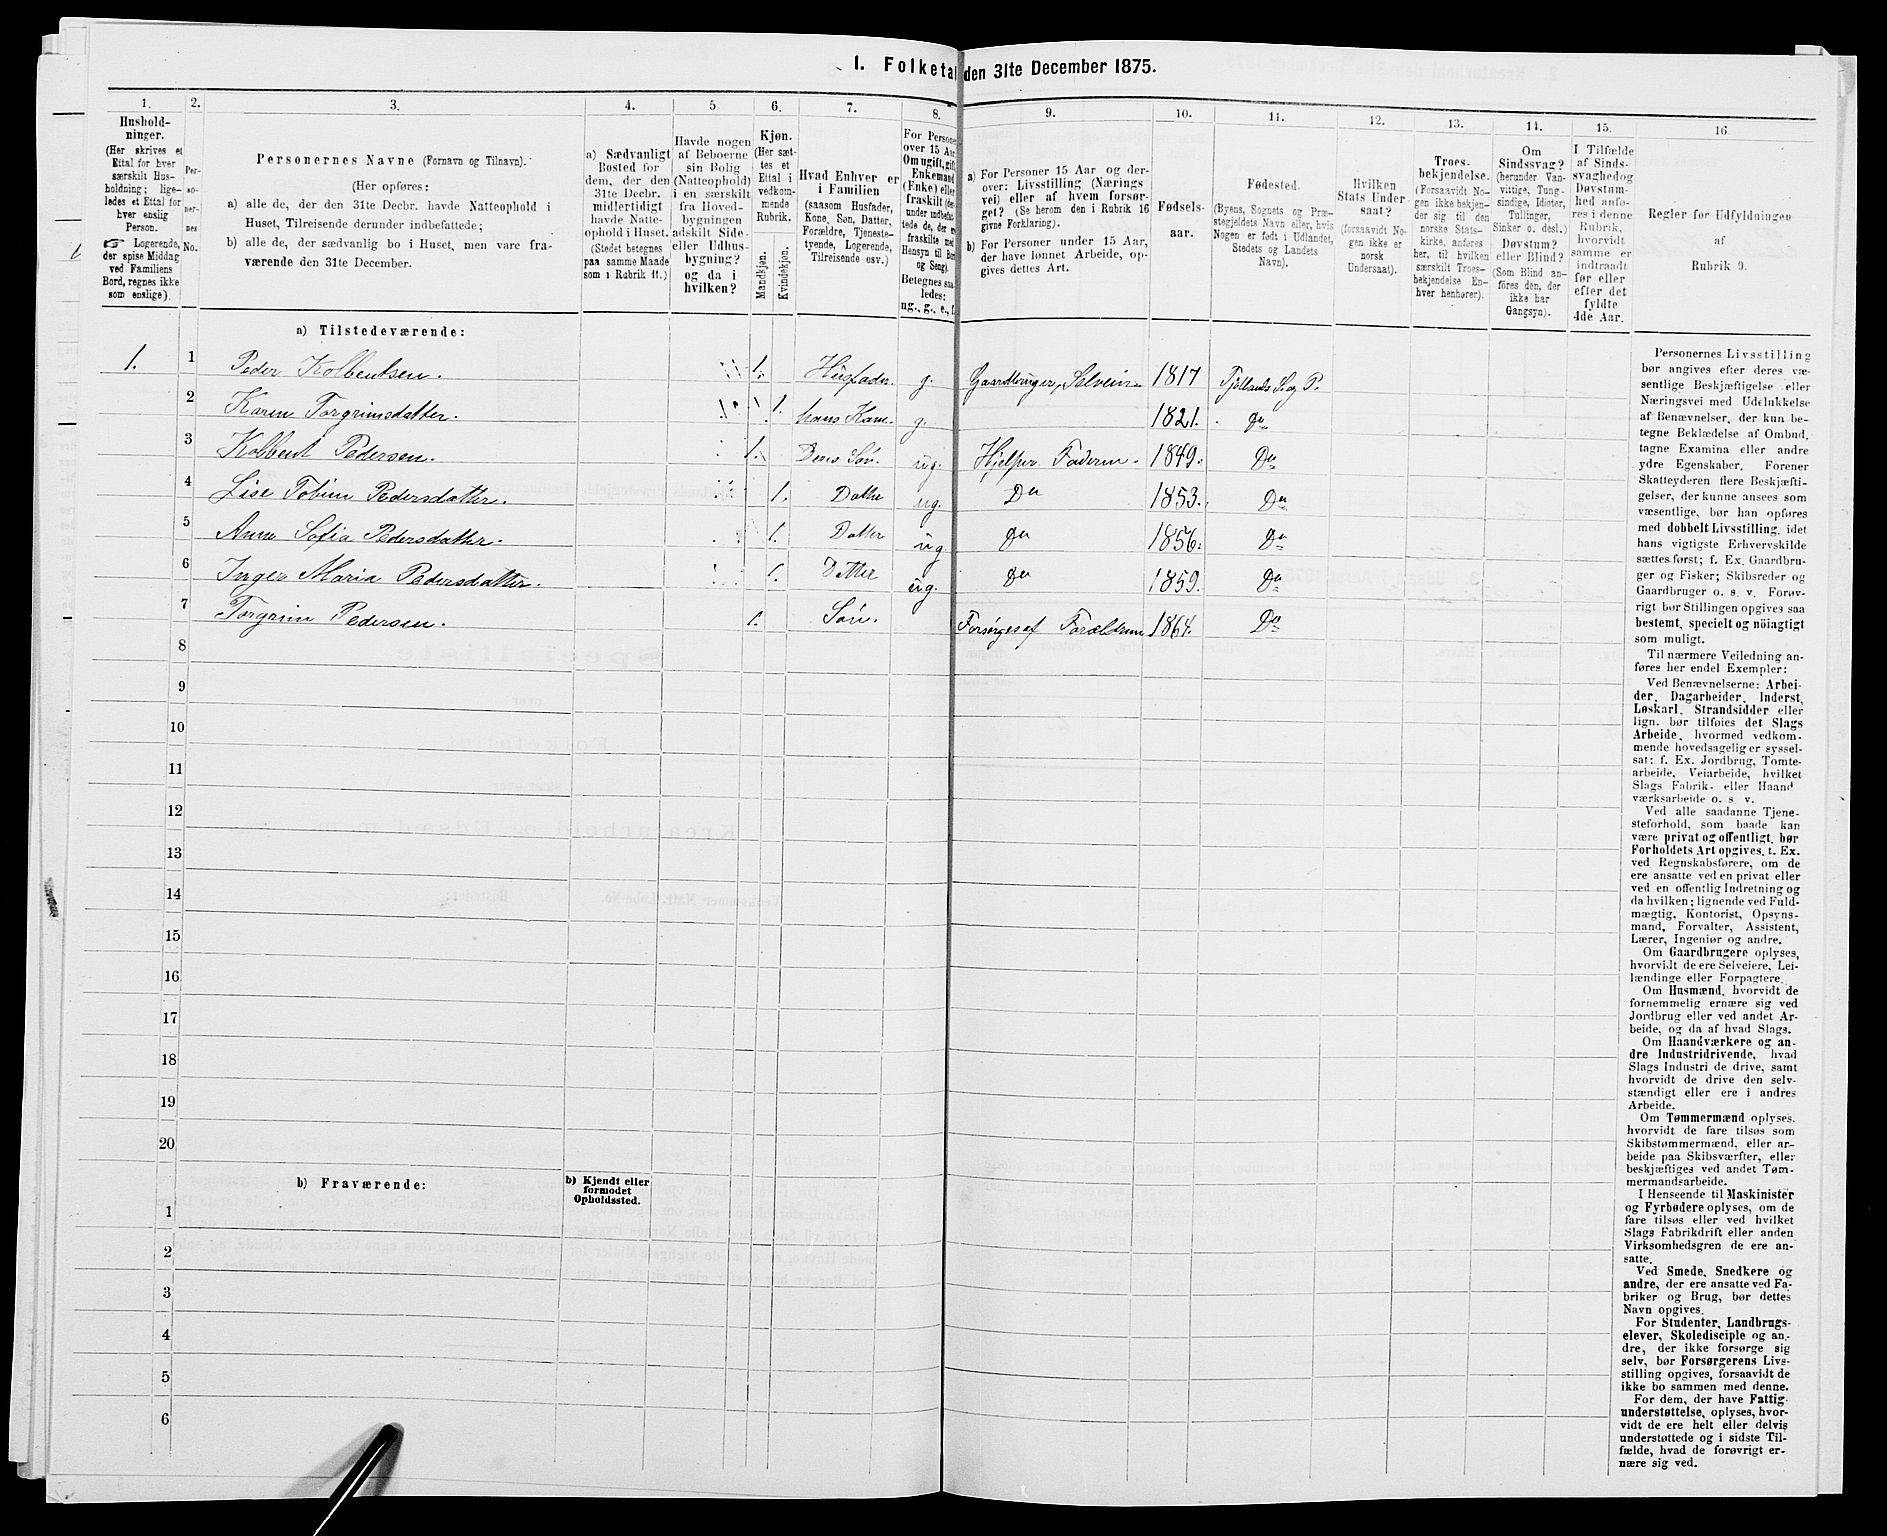 1. Folketal den 31te December 1875.
1. 2. 3. 4. 5. 6. 7. 8. 9. 10. 11. 12. 13. 14. 15. 16.
Hushold-
ninger.
(Her skrives et
Ettal for hver
særskilt Hus-
holdning; lige-
ledes et Ettal for
hver enslig
Person.
☞ Logerende,
der spise Middag
ved Familiens
Bord, regnes ikke
som enslige).
Per-
so-
ner-
nes
No.
Personernes Navne (Fornavn og Tilnavn).
(Her opføres:
a) alle de, der den 31te Decbr. havde Natteophold i
Huset, Tilreisende derunder indbefattede;
b) alle de, der sædvanlig bo i Huset, men vare fra-
værende den 31te December.
a) Sædvanligt
Bosted for
dem, der den
31te Decbr.
midlertidigt
havde Natte-
ophold i Huset.
(Stedet betegnes
paa samme Maade
som i Rubrik 11.)
Havde nogen
af Beboerne
sin Bolig
(Natteophold)
i en særskilt
fra Hoved-
bygningen
adskilt Side-
eller Udhus-
bygning?
og da i
hvilken?
Kjøn.
(Her sæt-
tes et
Ettal i
vedkom-
mende
Rubrik.
Mandkjøn.
Kvindekjøn.
Hvad Enhver er
i Familien
(saasom Husfader,
Kone, Søn, Datter,
Forældre, Tjeneste-
tyende, Logerende,
Tilreisende osv.)
For Persone
over 15 Aa
Om ugift, gift
Enkemand
(Enke) elle
fraskilt (der
under indbefat
tede de, der e
fraskilte med
Hensyn til Bo
og Seng).
Betegnes saa-
ledes:
ug., g., e., f.
a) For Personer 15 Aar og der-
over: Livsstilling (Nærings
vei) eller af hvem forsør-
get? (Se herom den i Rubrik 16
givne Forklaring).
b) For Personer under 15 Aar,
der have lønnet Arbeide, op-
gives dettes Art.
Fødsels-
aar.
Fødested.
(Byens, Sognets og Præ-
stegjeldets Navn eller, hvis
Nogen er født i Udlandet,
Stedets og Landets
Navn).
Hvilken
Stats Under-
saat?
(forsaavidt No-
gen ikke er
norsk
Undersaat).
Troes-
bekjendelse.
(Forsaavidt No-
gen ikke bekjen-
der sig til den
norske Stats-
kirke, anføres
her, til hvilken
særskilt Troes-
bekjendelse En-
hver henhører).
Om
Sindssvag?
(herunder Van-
vittige, Tung-
sindige, Idioter,
Tullinger,
Sinker o. desl.)
Døvstum?
eller Blind?
(Som Blind an-
føres den, der
ikke har
Gangsyn).
I Tilfælde
af Sinds-
svaghed og
Døvstum-
hed anfø-
res i denne
Rubrik,
hvorvidt
samme er
indtraadt
før eller
efter det
fyldte
4de Aar.
Regler før Udfyldningen
af
Rubrik 9.
a) Tilstedeværende:
1. 1 Peder Kolbentsen. 1. Husfader g. Gaardbruger, Selveier 1817 Fjellands S. og P.
2 Karen Torgrimsdatter. 1. hans Kone g. 1821. Do
3 Kolbent Pedersen. 1. Deres Søn. ug. Hjelper Faderen 1849. Do
4 Lise Tobine Pedersdatter. 1. Datter ug. Do 1853. Do
5 Anne Sofia Pedersdatter. 1. Datter ug Do 1856. Do
6 Inger Maria Pedersdatter. 1. Datter ug. Do 1859. Do
7 Torgrim Pedersen. 1. Søn. Forsørges af Forældrene 1864. Do
8
9
10
11
12
13
14
15
16
17
18
19
20
b) Fraværende:
b) Kjendt eller
formodet
Opholdssted.
1
2
3
4
5
6
Personernes Livsstilling
bør angives efter deres væ-
sentlige Beskjæftigelse eller
Næringsvei med Udelukkelse
af Benævnelser, der kun be-
tegne Beklædelse af Ombud,
tagne Examina eller andre
ydre Egenskaber. Forener
Skatteyderen flere Beskjæfti-
gelser, der kunne ansees som
væsentlige, bør han opføres
med dobbelt Livsstilling, idet
hans vigtigste Erhvervskilde
sættes først; f. Ex. Gaardbru-
ger og Fisker; Skibsreder og
Gaardbruger o. s. v. Forøv-
rigt bør Stillingen opgives saa
bestemt, specielt og nöiagtigt
som muligt.
Til nærmere Veiledning an-
føres her endel Exempler:
Ved Benævnelserne: Arbei-
der, Dagarbeider, Inderst,
Løskarl, Strandsidder eller
lign. bør tilføies det Slags
Arbeide, hvormed vedkom-
mende hovedsagelig er syssel-
sat; f. Ex. Jordbrug, Tomte-
arbeide, Veiarbeide, hvilket
Slags Fabrik- eller Haand
værksarbeide o. s. v.
Ved alle saadanne Tjene-
steforhold, som baade kan
være privat og offentligt, bør
Forholdets Art opgives, t. Ex.
ved Regnskabsførere, om de
ere ansatte ved en privat eller
ved en offentlig Indretning og
da hvilken; lignende ved Fuld-
mægtig, Kontorist, Opsyns-
mand, Forvalter, Assistent,
Lærer, Ingeniør og andre.
Om Gaardbrugere oplyses,
hvorvidt de ere Selveiere, Lei-
lændinge eller Forpagtere.
Om Husmænd, hvorvidt de
fornemmelig ernære sig ved
Jordbrug eller ved andet Ar-
beide, og da af hvad Slags.
Om Haandværkere og an-
dre Industridrivende, hvad
Slags Industri de drive, samt
hvorvidt de drive den selv-
stændigt eller ere i andres
Arbeide.
Om Tømmermænd oplyses,
hvorvidt de fare tilsøs som
Skibstømmermænd, eller ar-
beide paa Skibsværfter, eller
beskjæftiges ved andet Tøm-
mermandsarbeide.
I Henseende til Maskinister
og Fyrbødere oplyses, om de
fare tilsøs eller ved hvilket
Slags Fabrikdrift eller anden
Virksomhedsgren de ere an-
satte.
Ved Smede, Snedkere og
andre, der ere ansatte ved Fa-
briker og Brug, bør dettes
Navn opgives.
For Studenter, Landbrugs-
elever, Skoledisciple og an-
dre, der ikke forsørge sig
selv, bør Forsørgerens Livs-
stilling opgives, forsaavidt de
ikke bo sammen med denne.
For dem, der have Fattig-
understøttelse, oplyses, hvor-
vidt de ere helt eller delvis
understøttede og i sidste Til-
fælde, hvad de forøvrigt er-
nære sig ved.